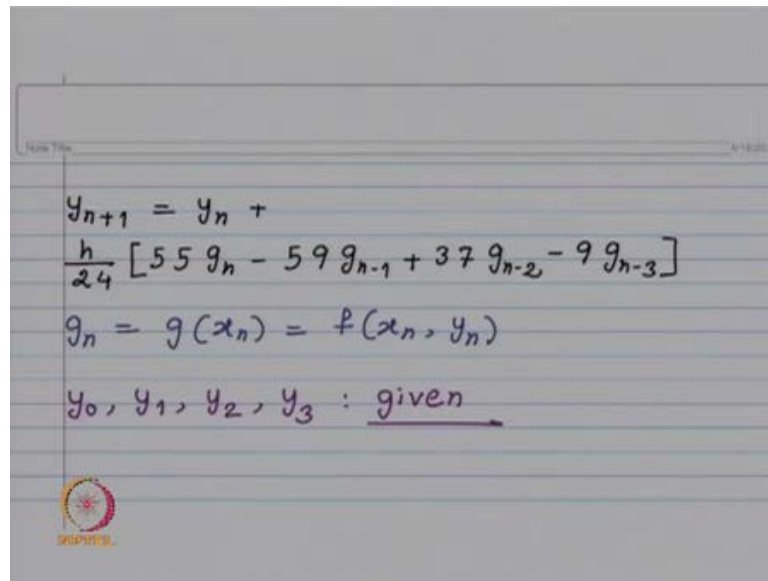 Note Title
y_{n+1} = y_n +
h/24 [55 g_n - 59 g_{n-1} + 37 g_{n-2} - 9 g_{n-3}]
g_n = g(x_n) = f(x_n, y_n)
y_0, y_1, y_2, y_3 : given